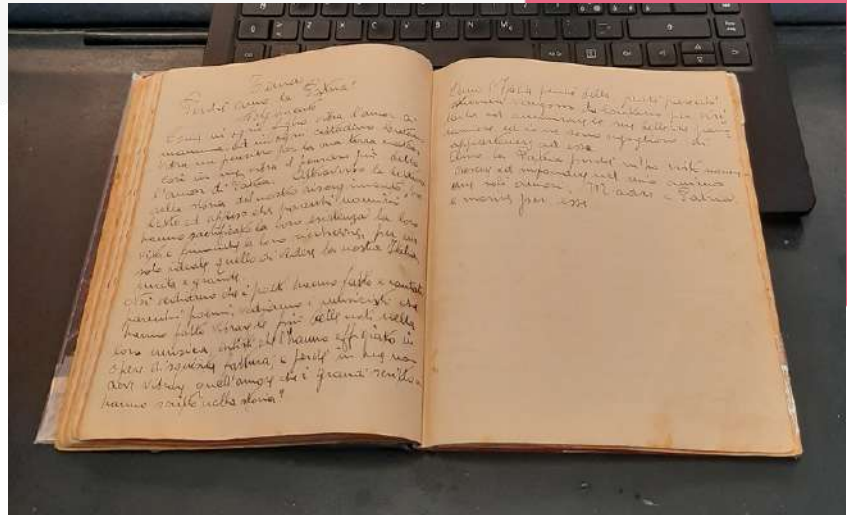 Tema
Perché amo la Patria?
Svolgimento
Come in ogni figlio vibra l'amor di
mamma ed in ogni cittadino
vibra un pensiero per la sua terra madre,
così in me vibra il pensiero più bello
l'amor di Patria. Attraverso la lettura
della storia del nostro risorgimento, ho
letto ed appreso che parecchi uomini
hanno sacrificato la loro esistenza la loro
vita e le loro ricchezze, per un
solo ideale quello di vedere la nostra Italia
unita e grande.
Noi vediamo che i poeti hanno fatto e cantati
parecchi poemi, vediamo i musicisti che
hanno fatto vibrare le più belle note nella
loro musica, artisti che l'hanno effigiato in
opere di squisita fattura; e perché in me non
deve vibrare quell'amore che i grandi
hanno scritto nella storia?
Amo l'Italia perché delle
vengono da lontano per
ad ammirare le sue bellezze
ed io ne sono orgoglioso di
appartenere ad essa.
Amo la Patria perché m'ha visto nascere
crescere ed nel mio animo
un solo amore, Madre e Patria
e morire per essa